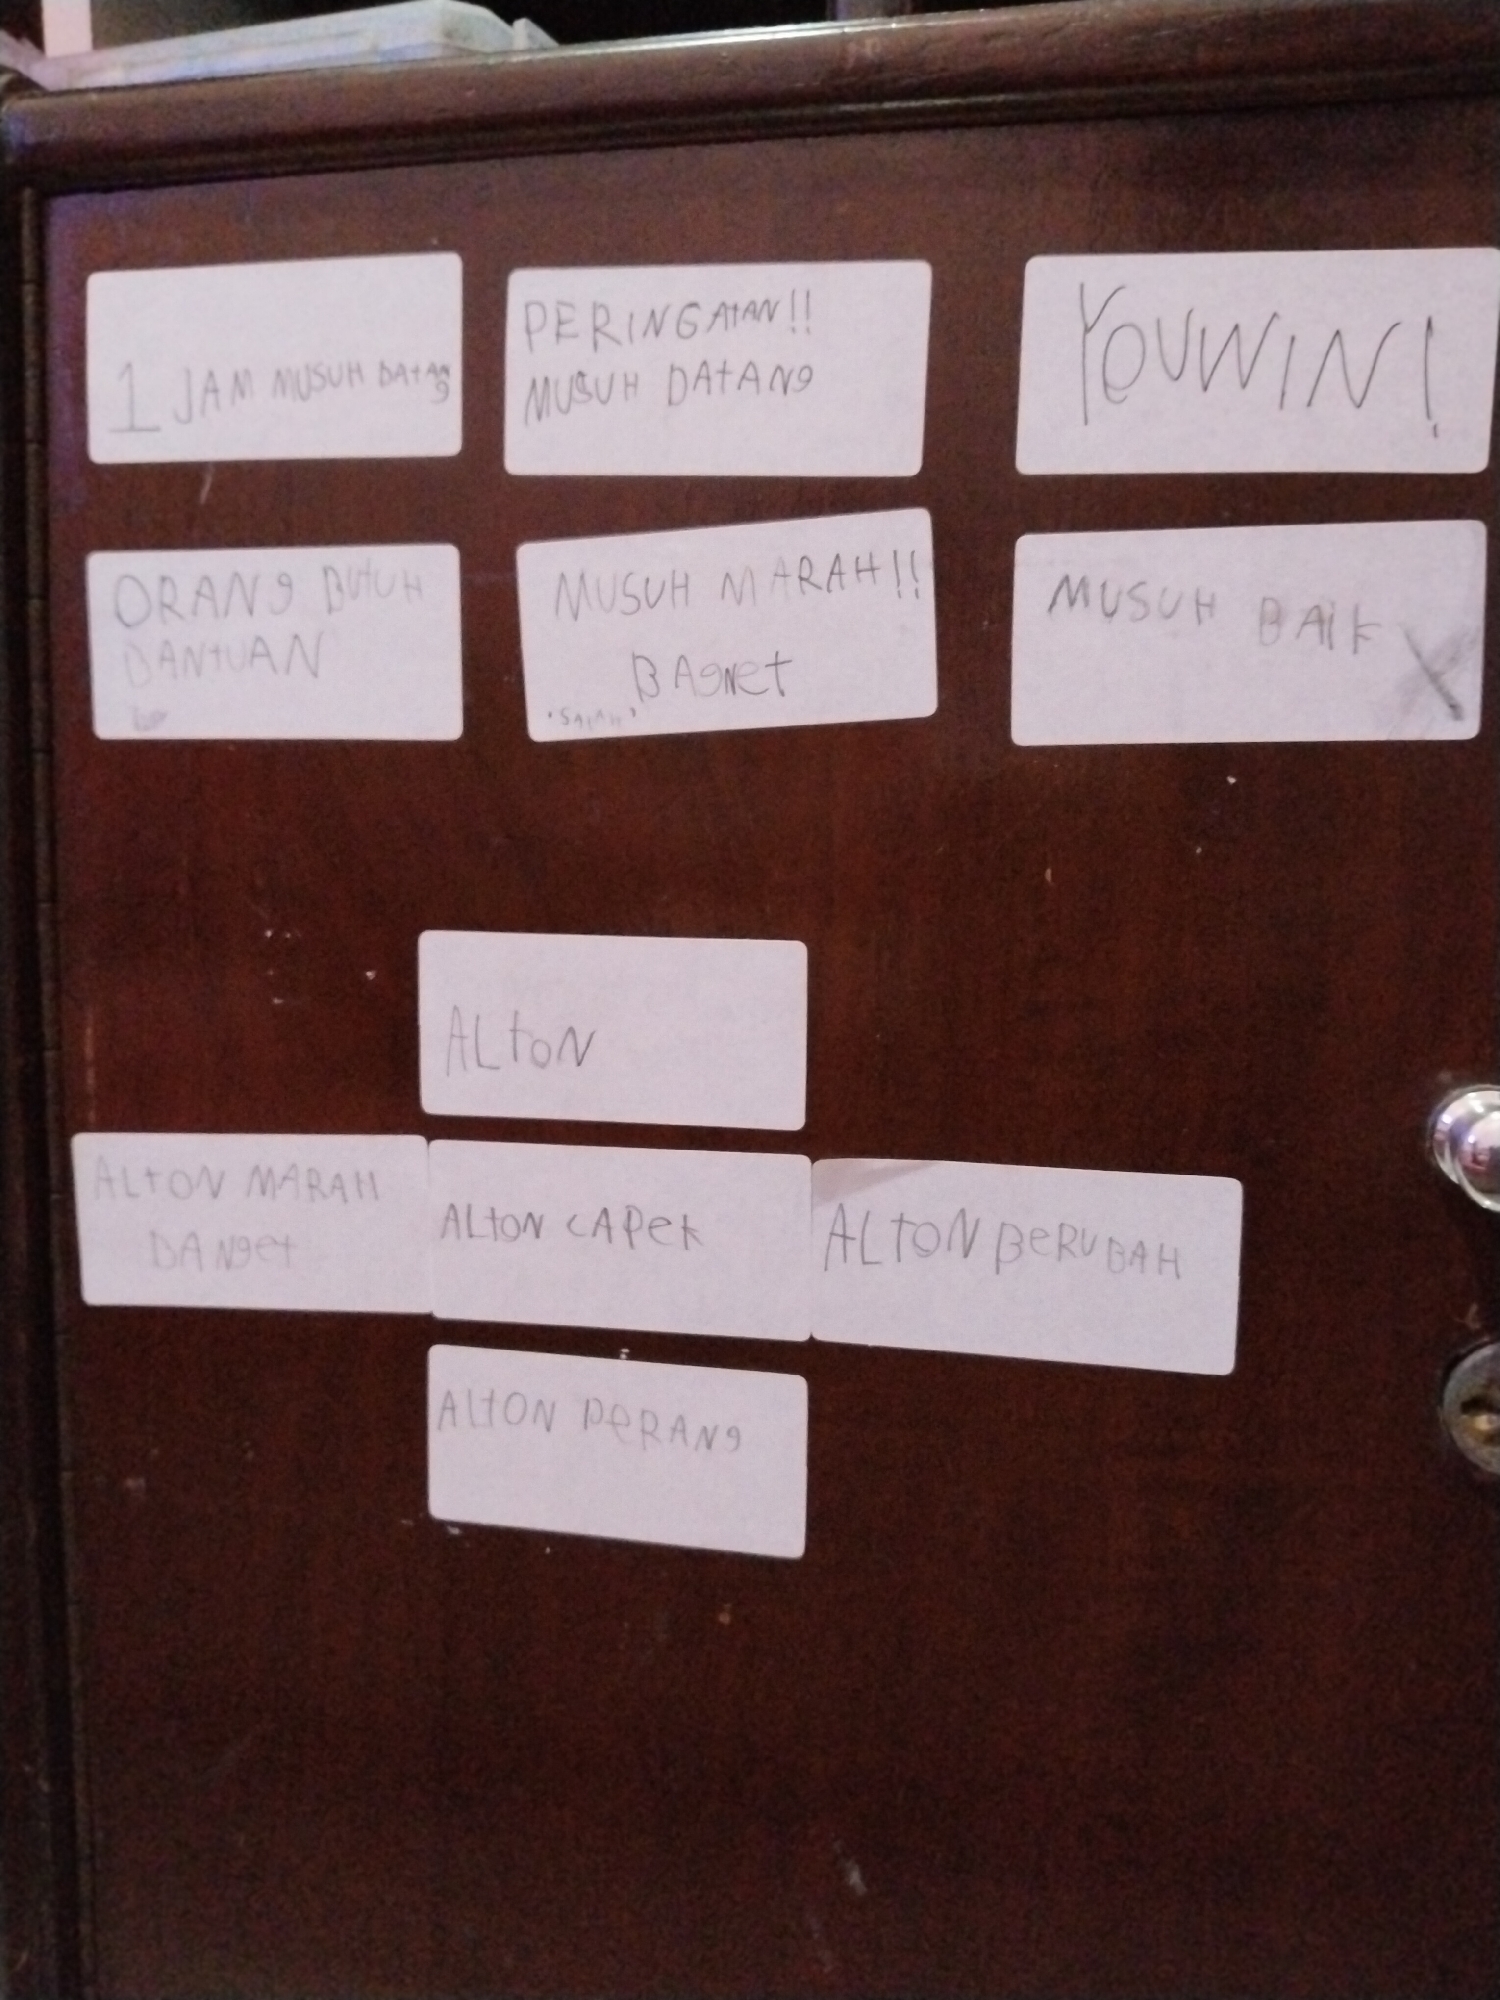 1 JAM MUSUH DATANG
PERINGATAN!!
MUSUH DATANG
YOUWIN!
ORANG BUTUH
BANTUAN
MUSUH MARAH!!
BAGNET
"SALAH"
MUSUH BAIK X
ALTON
ALTON MARAH
BANGET
ALTON CAPEK
ALTON BERUBAH
ALTON PERANG